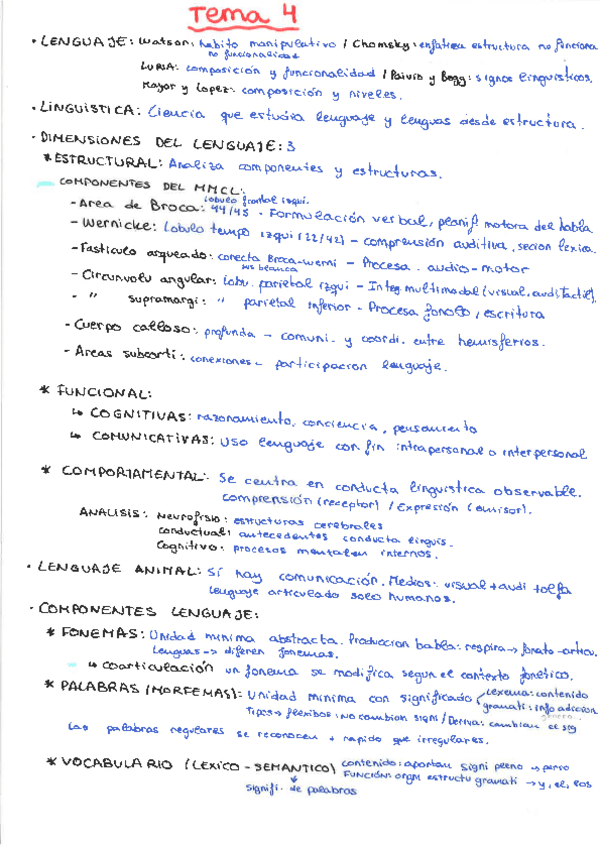 Tema 4
· LENGUAJE: Watson: habito manipulativo / Chomsky: enfatiza estructura no funciona
no funcionalidad
LURIA: composición y funcionalidad / Paivio y Begg: signos linguísticos.
Mayor y Lopez: composición y niveles.
· LINGUISTICA: Ciencia que estudia lenguaje y lenguas desde estructura.
· DIMENSIONES DEL LENGUAJE: 3
* ESTRUCTURAL: Analiza componentes y estructuras.
COMPONENTES DEL MMCL:
lobulo frontal izqui.
- Area de Broca: 44/45 - Formulación verbal, planif motora del habla
- Wernicke: Lobulo tempo izqui (22/42) - comprensión auditiva, secion lexica.
- Fasticulo arqueado: conecta Broca-werni - Procesa. audio-motor
sus blanca
- Circunvolu angular: lobu. parietal izqui - Integ. multimodal (visual, audi, tactil).
- " supramargi: " parietal inferior - Procesa fonolo, escritura
- Cuerpo calloso: profunda → comuni. y coordi. entre hemisferios.
- Areas subcorti: conexiones - participacion lenguaje.
* FUNCIONAL:
↳ COGNITIVAS: razonamiento, conciencia, pensamiento
↳ COMUNICATIVAS: uso lenguaje con fin intrapersonal o interpersonal
* COMPORTAMENTAL: Se centra en conducta linguistica observable.
comprensión (receptor) / Expresión (emisor).
ANALISIS: Neurofisio: estructuras cerebrales
conductual: antecedentes conducta linguis.
Cognitivo: procesos mentales internos.
· LENGUAJE ANIMAL: Sí hay comunicación. Medios: visual + audi + olfa
lenguaje articulado solo humanos.
· COMPONENTES LENGUAJE:
* FONEMAS: Unidad minima abstracta. Produccion habla: respira → fonato → articu.
Lenguas → difieren fonemas.
↳ coarticulación un fonema se modifica segun el contexto fonetico.
* PALABRAS (MORFEMAS): Unidad minima con significado lexema: contenido
gramati: info adicion
genero...
Tipos → flexibos: no cambian sign / Deriva: cambian el sig
Las palabras regulares se reconocen + rapido que irregulares.
* VOCABULARIO (LEXICO - SEMANTICO) contenido: aportan signi pleno → perro
FUNCIÓN: orga estructu gramati → y, el, los
signifi. de palabras